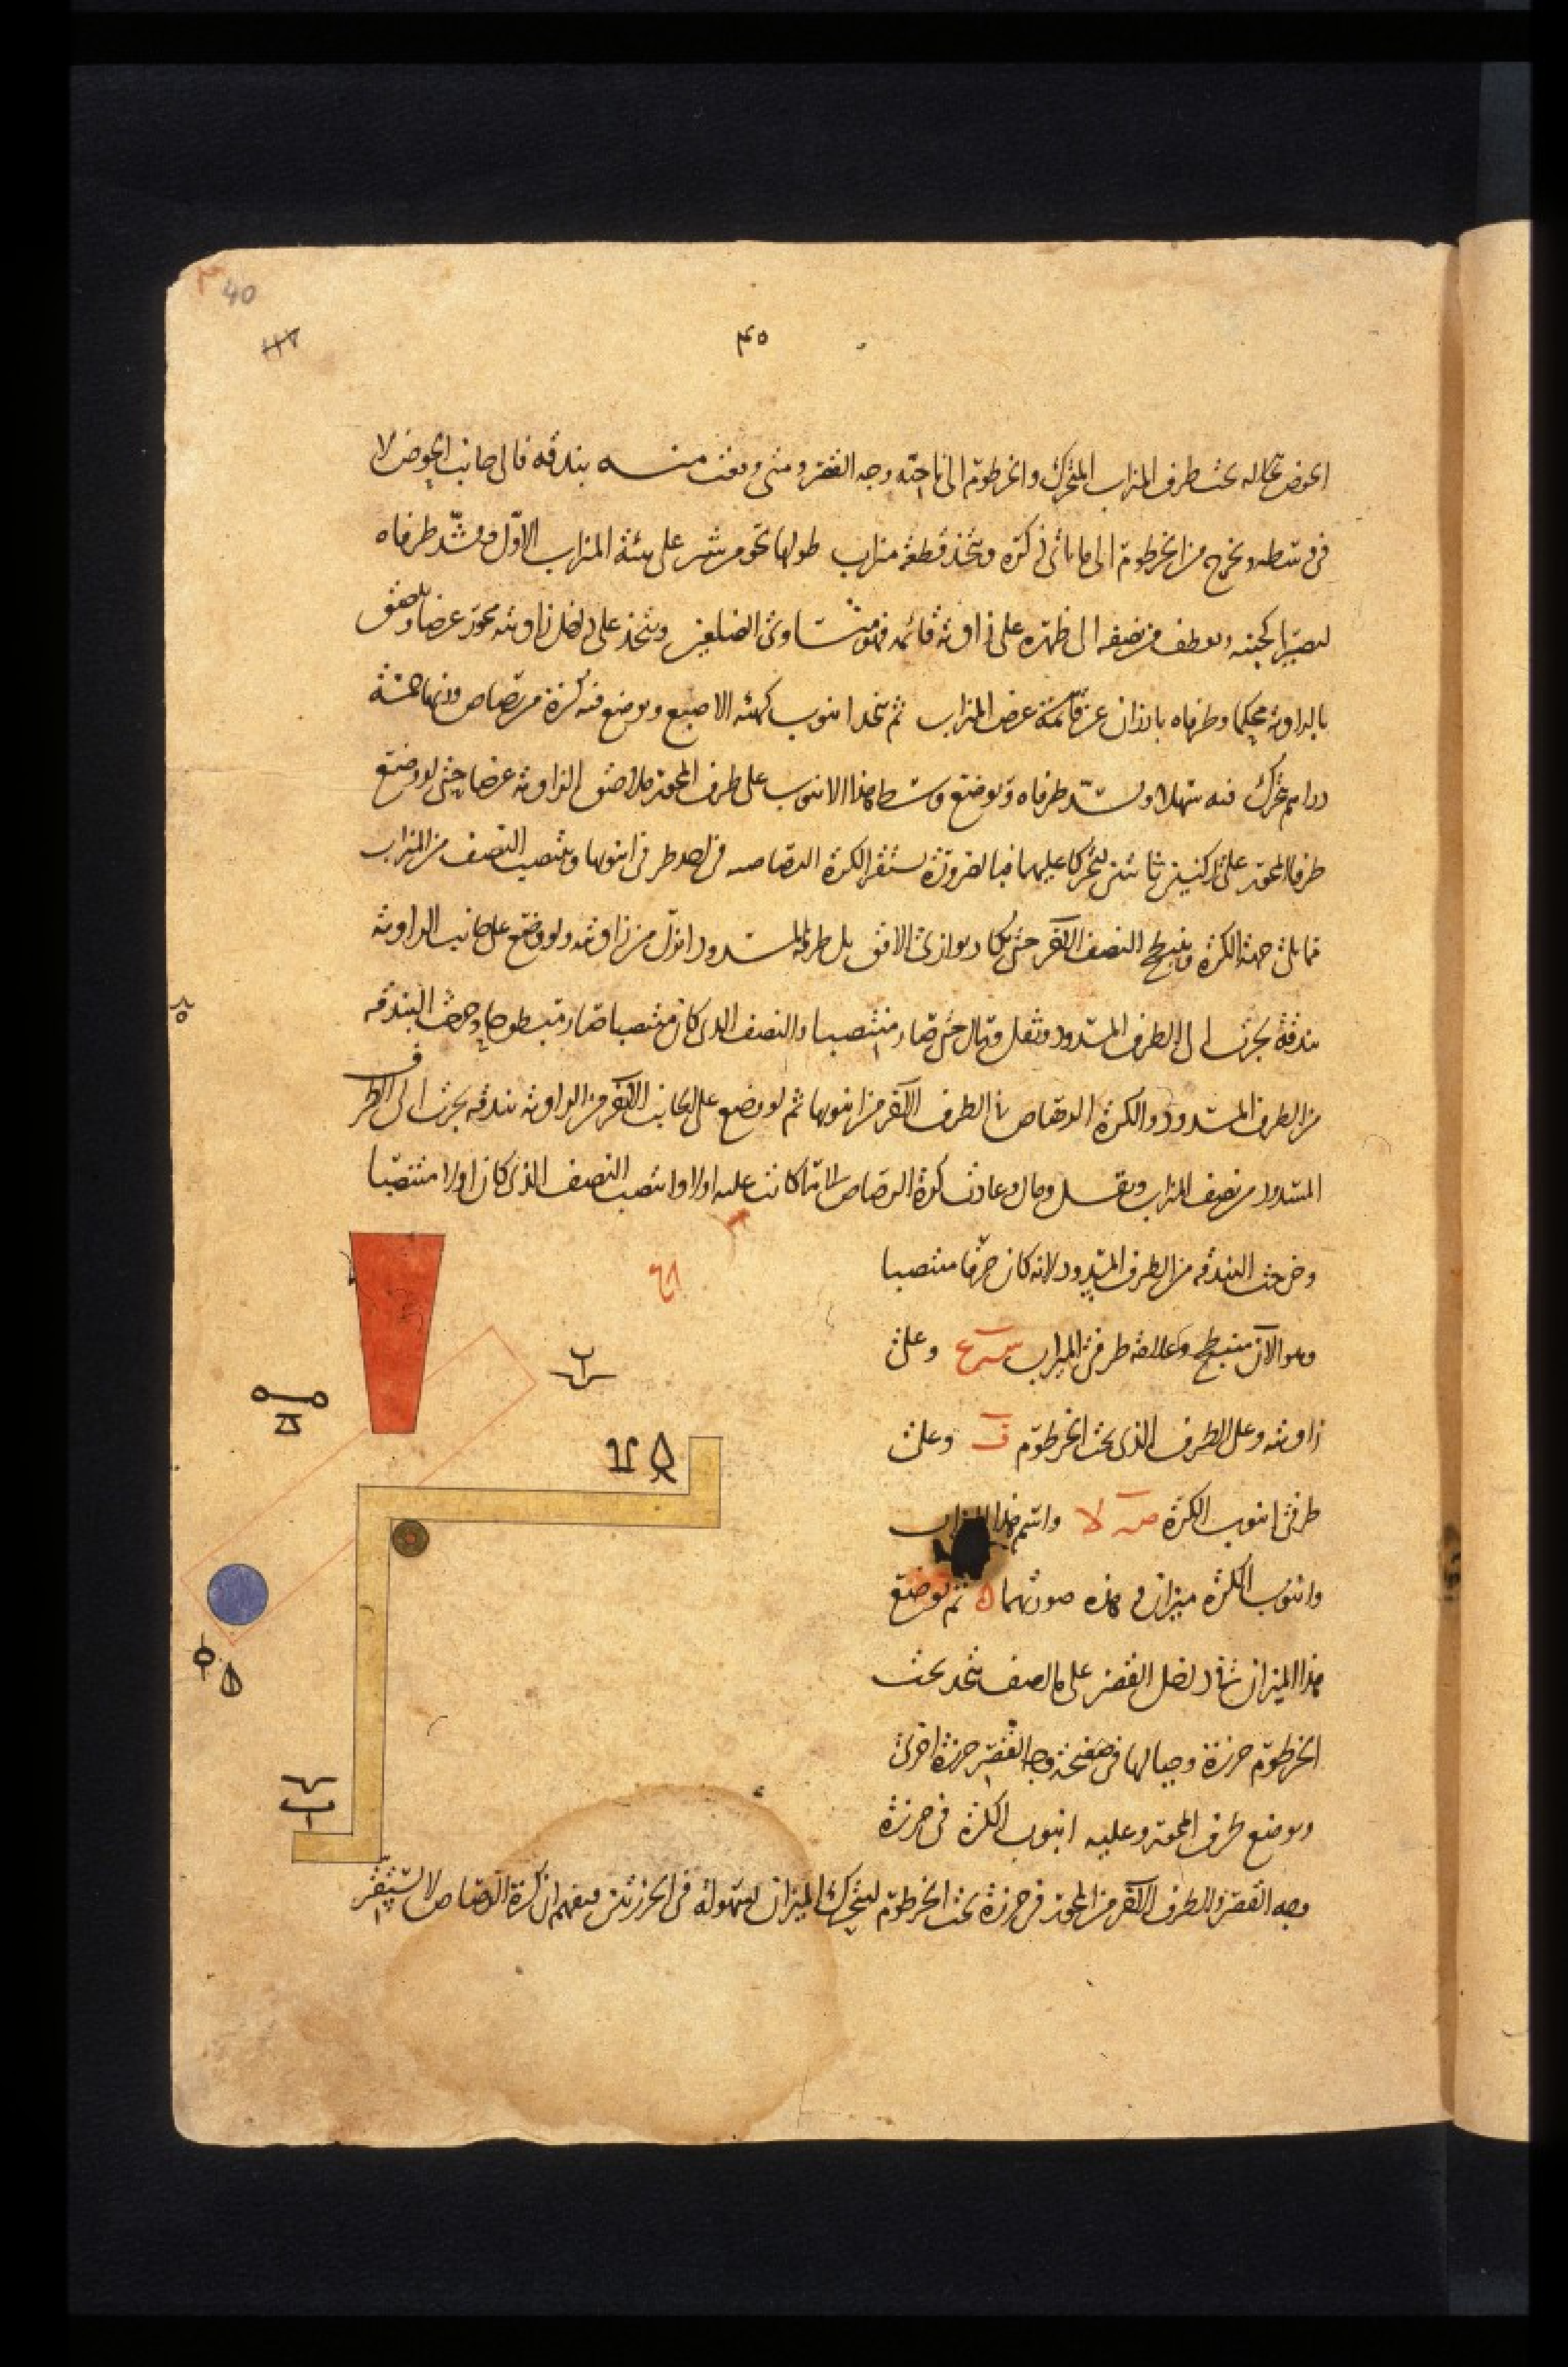 40
٤٥
الحوض بحاله تحت طرف المزاب المتحرك والخرطوم الى ناحية وجه القصر ومتى وقعت منه بندقة فالى جانب الحوض لا
فى وسطه وتخرج من الخرطوم الى ما ياتى ذكره ويتخذ قطعة مزاب طولها نحو من شبر على هيئة المزاب الاول ويسد طرفاه
ليصير كجبنه ويعطف من نصفه الى ظهره على زاوية قائمة فهو متساوى الضلعين ويتخذ على داخل زاويته محور عرضا ويلصق
بالزاوية محكما وطرفاه بارزان عن قائمة عرض المزاب ثم يتخذ انبوب كهيئة الاصبع ويوضع فيه كرة من رصاص وزنها خمسة
دراهم تتحرك فيه سهلا ويسد طرفاه ويوضع وسط هذا الانبوب على طرف المحور ملاصق الزاوية عرضا حتى لو وضع
طرفا المحور على ركنين ثابتين ليتحركا عليهما فبالضرورة تستقر الكرة الرصاص فى احد طرفى انبوبها وينتصب النصف من المزاب
مما يلى جهة الكرة وينبطح النصف الآخر حتى يكاد يوازى الافق بل طرفه المسدود انزل من زاويته ولو وضع على جانب الزاوية
بندقة لجرت الى الطرف المسدود وثقل ومال حتى صار منتصبا والنصف الذى كان منتصبا صار منبطحا وخرجت البندقة
من الطرف المسدود والكرة الرصاص فى الطرف الآخر من انبوبها ثم لو وضع على الجانب الآخر من الزاوية بندقة لجرت الى الطرف
المسدود من نصف المزاب وثقل ومال وعادت كرة الرصاص الى ما كانت عليه اولا وانتصب النصف الذى كان اولا منتصبا
وخرجت البندقة من الطرف المسدود لانه كان حرفا منتصبا
وهو الآن منبطح وعلامة طرفى المزاب س ع وعلى
زاويته وعلى الطرف الذى تحت الخرطوم ف وعلى
طرفى انبوب الكرة ص لا واسم هذا المزاب
وانبوب الكرة ميزان وهذه صورتهما ثم يوضع
هذا الميزان فى داخل القصر على ما اصف يتخذ تحت
الخرطوم خرزة وحيالها فى صفيحة وجه القصر خرزة اخرى
ويوضع طرف المحور وعليه انبوب الكرة فى خرزة
وجه القصر والطرف الآخر من المحور فى خرزة تحت الخرطوم ليتحرك الميزان بسهولة فى الخرزتين فيفهم ان كرة الرصاص لا تستقر